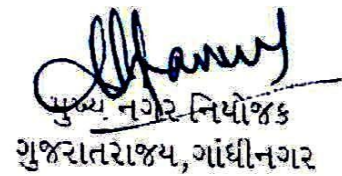 મુખ્ય નગર નિયોજક
ગુજરાતરાજય,ગાંધીનગર